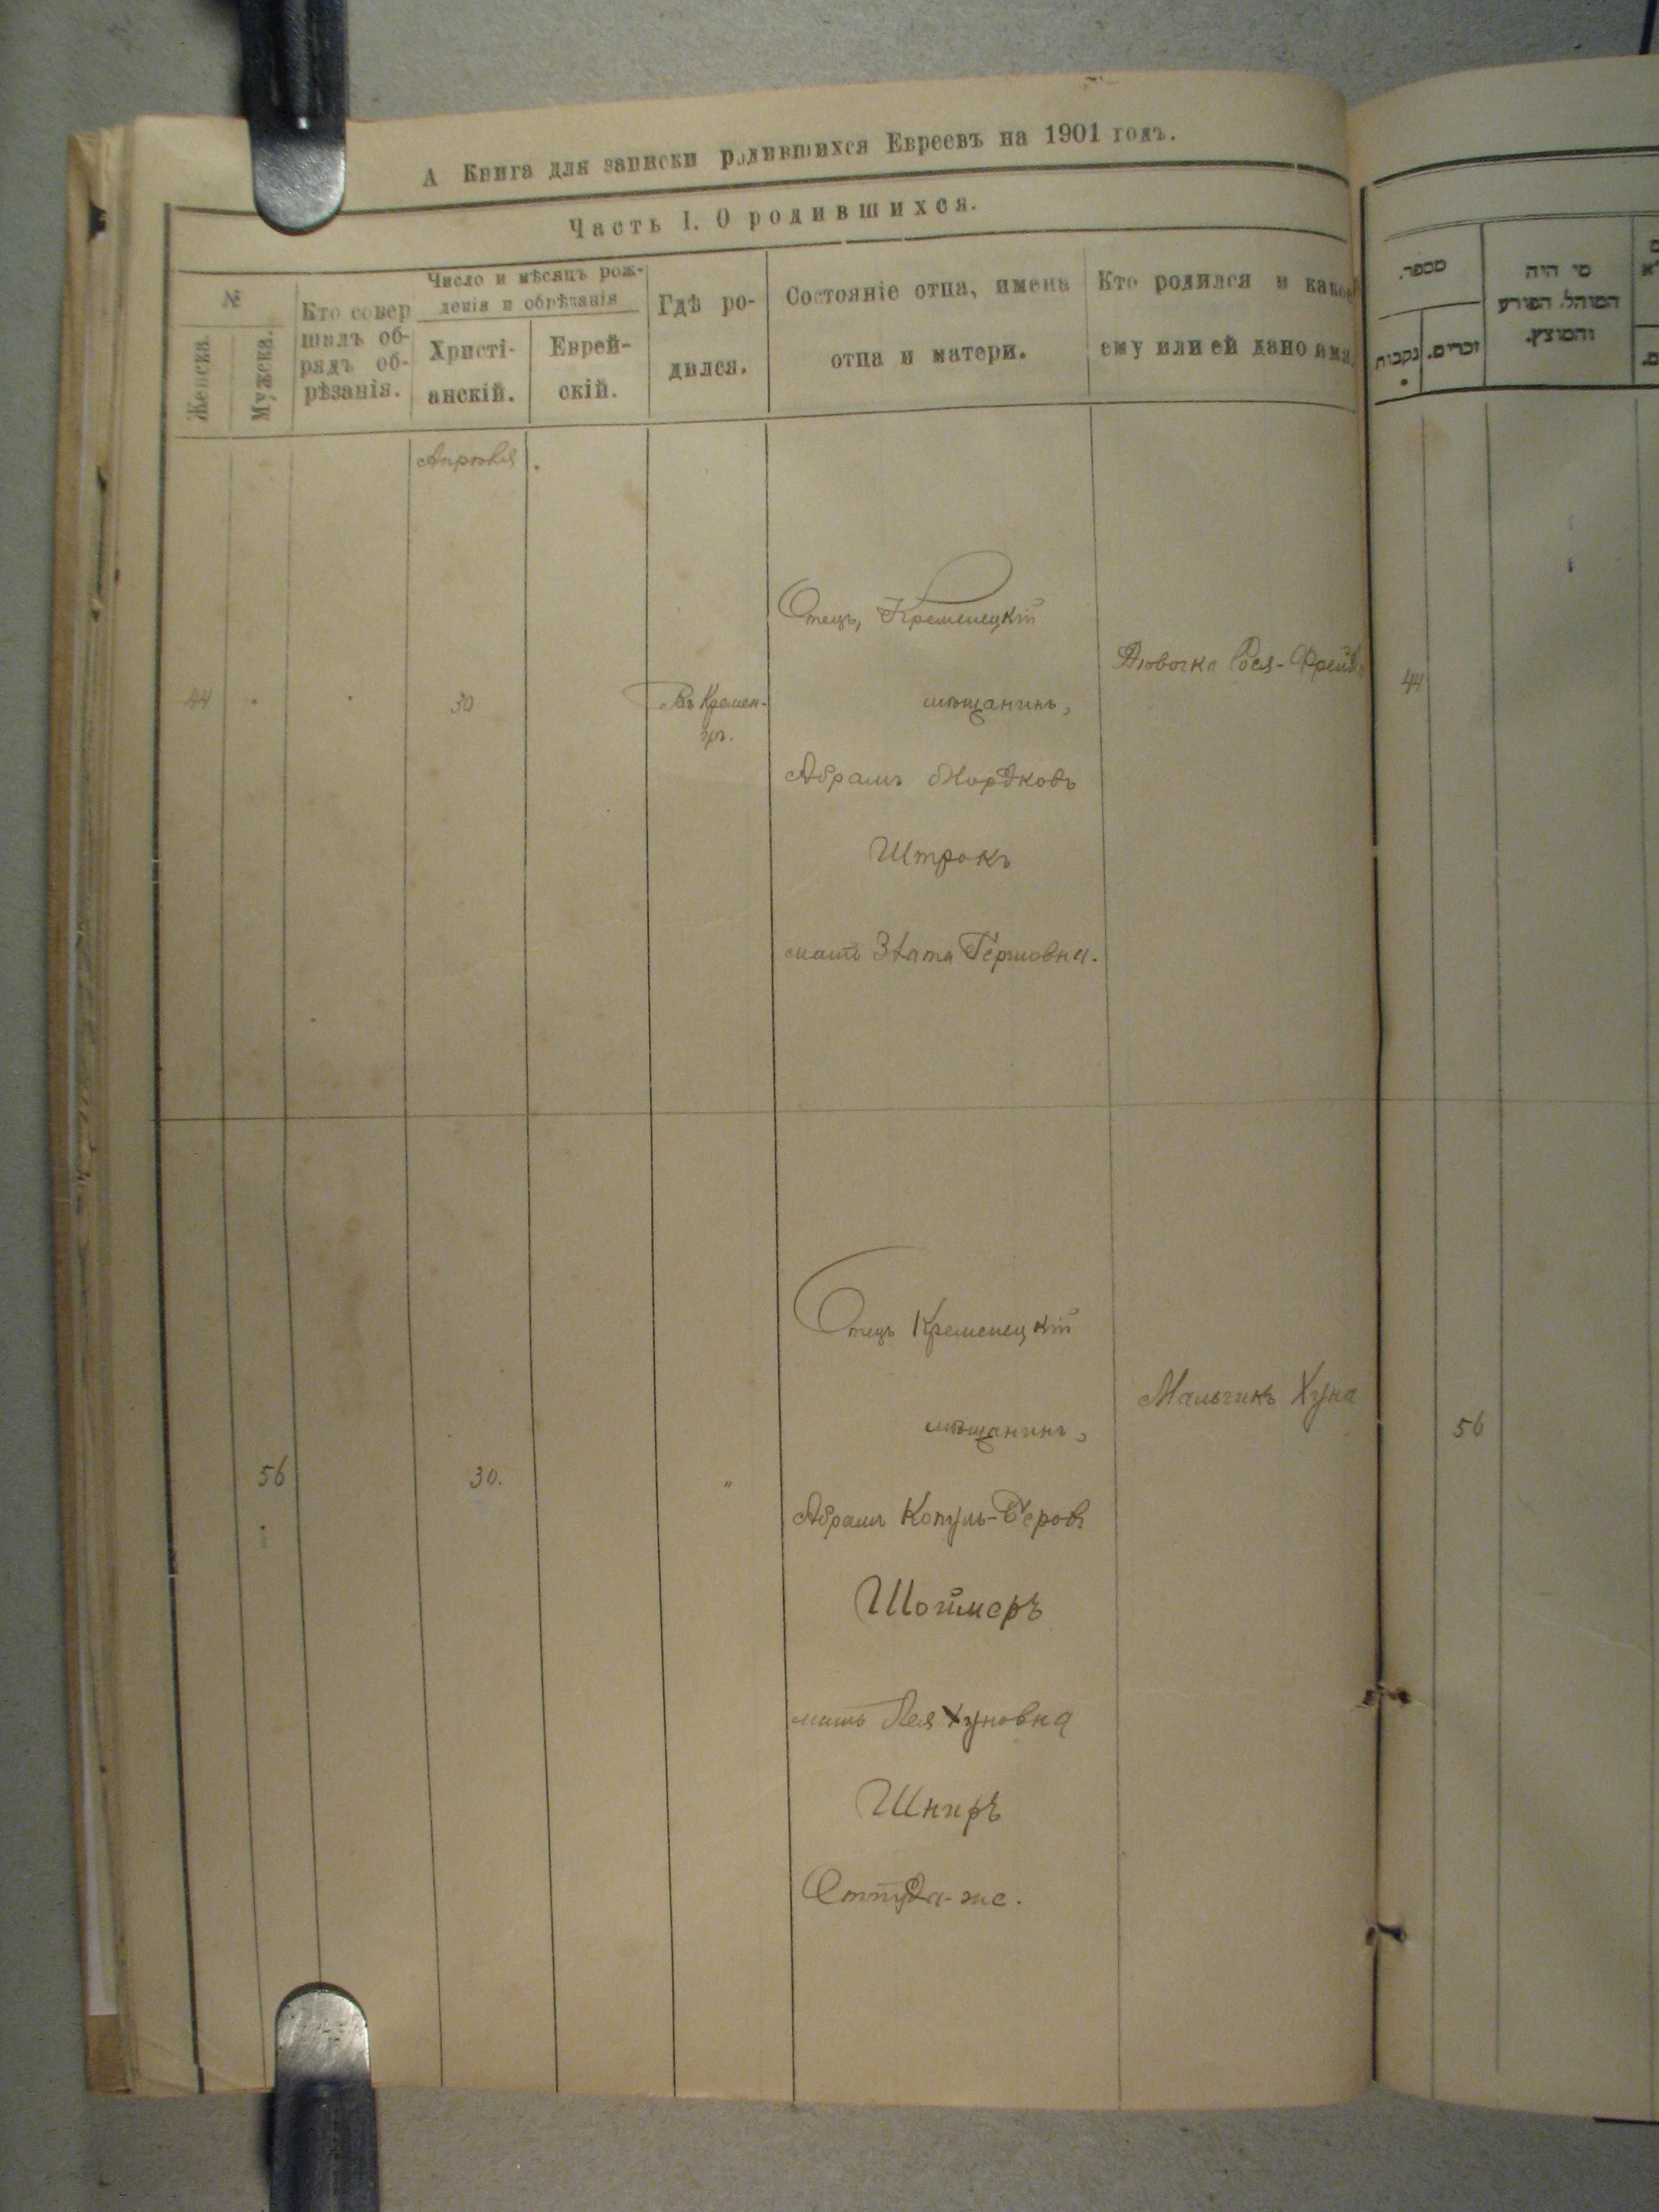 А Книга для записки родившихся Евреевъ на 1901 годъ.
Часть I. О родившихся.
№
Женска.
Мужска.
Кто совер
шалъ об-
рядъ об-
рѣзанія.
Число и мѣсяцъ рож-
денія и обрѣзанія
Христі-
анскій.
Еврей-
скій.
Гдѣ ро-
дился.
Состояніе отца, имена
отца и матери.
Кто родился и какое
ему или ей дано имя.
Апрѣля
44
30
Въ Кремен-
цѣ.
Отецъ, Кременецкій
мѣщанинъ,
Абрамъ Мордковъ
Штрокъ
мать Злата Гершовна.
Дѣвочка Рося-Фрейда
56
30.
"
Отецъ Кременецкій
мѣщанинъ,
Абрамъ Копуль-Беровъ
Шоймеръ
мать Лея Хуновна
Шниръ
Оттуда-же.
Мальчикъ Хуна
מספר.
נקבות
זכרים.
מי היה
המוהל. הפורע
והמוצץ.
44
56